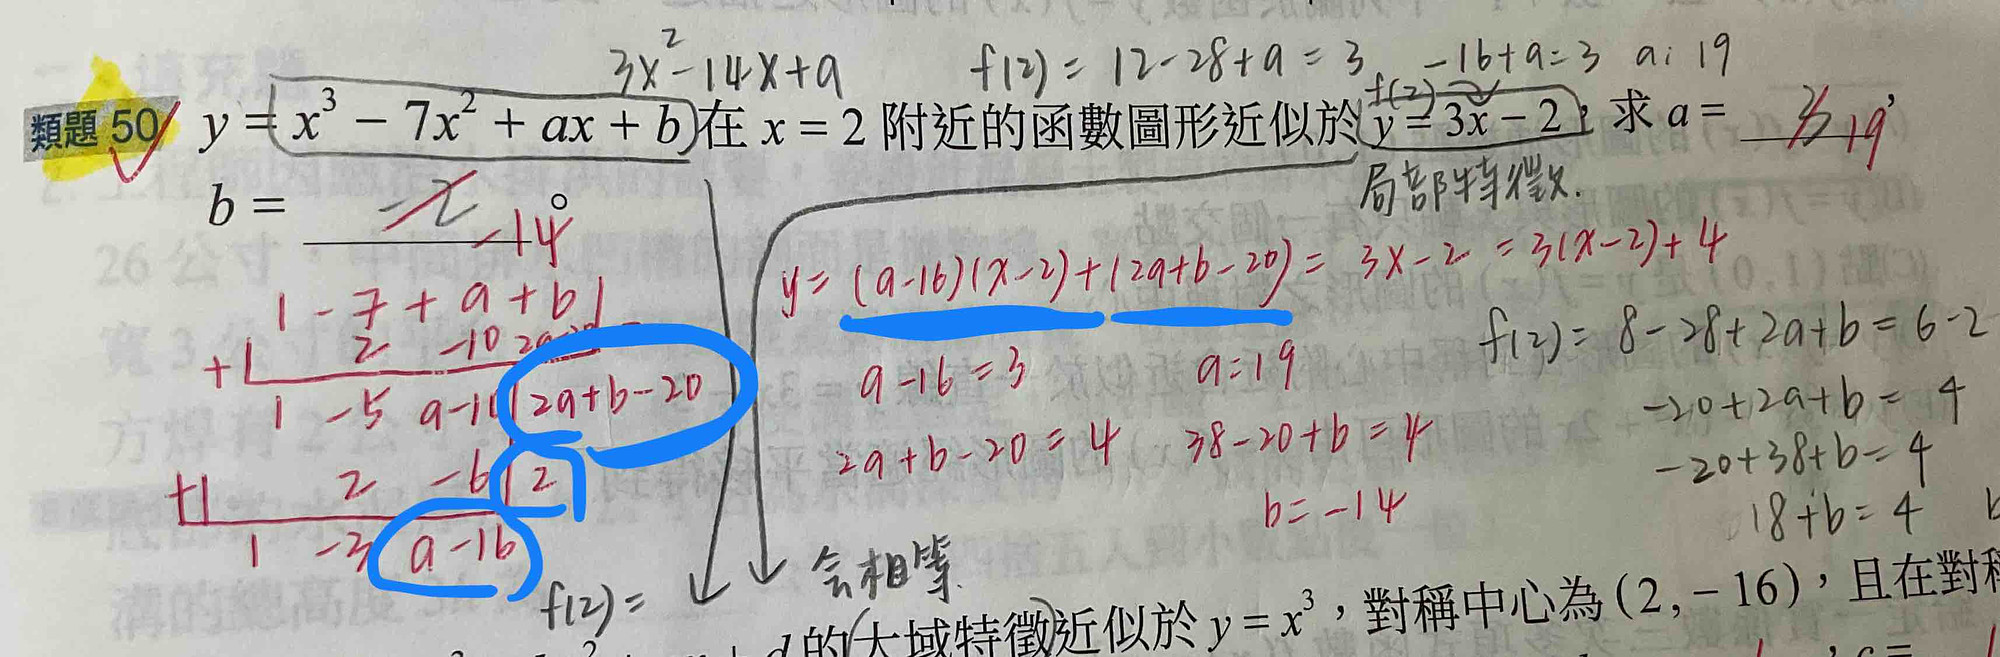 3x²-14x+a f(2)=12-28+a=3 -16+a=3 a:19
f(2)
類題 50 y = x³ − 7x² + ax + b 在 x = 2 附近的函數圖形近似於 y = 3x − 2,求 a = 3 19,
局部特徵.
b = -2 -14 。
1 -7 +a +b
y=(a-16)(x-2)+(2a+b-20)=3x-2=3(x-2)+4
+) 2 -10
f(2)=8-28+2a+b=6-2
1 -5 2a+b-20
a-16=3 a=19
-20+2a+b=4
+) 2 -6 2
2a+b-20=4 38-20+b=4
-20+38+b=4
1 -3 a-16
b=-14
18+b=4
f(2)=
會相等.
的大域特徵近似於 y = x³,對稱中心為 (2, − 16),且在對稱